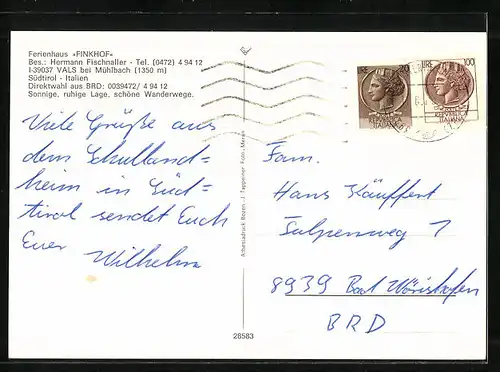 Ferienhaus »FINKHOF«
Bes.: Hermann Fischnaller - Tel. (0472) 4 94 12
I-39037 VALS bei Mühlbach (1350 m)
Südtirol - Italien
Direktwahl aus BRD: 0039472/ 4 94 12
Sonnige, ruhige Lage, schöne Wanderwege.
Viele Grüße aus
dem Schulland=
heim in Süd=
tirol sendet Euch
Euer Wilhelm
Athesiadruck Bozen - J. Tappeiner Foto, Meran
28583
LIRE 100
REPUBBLICA
ITALIANA
Fam.
Hans Käuffert
Tulpenweg 1
8939 Bad Wörishofen
BRD